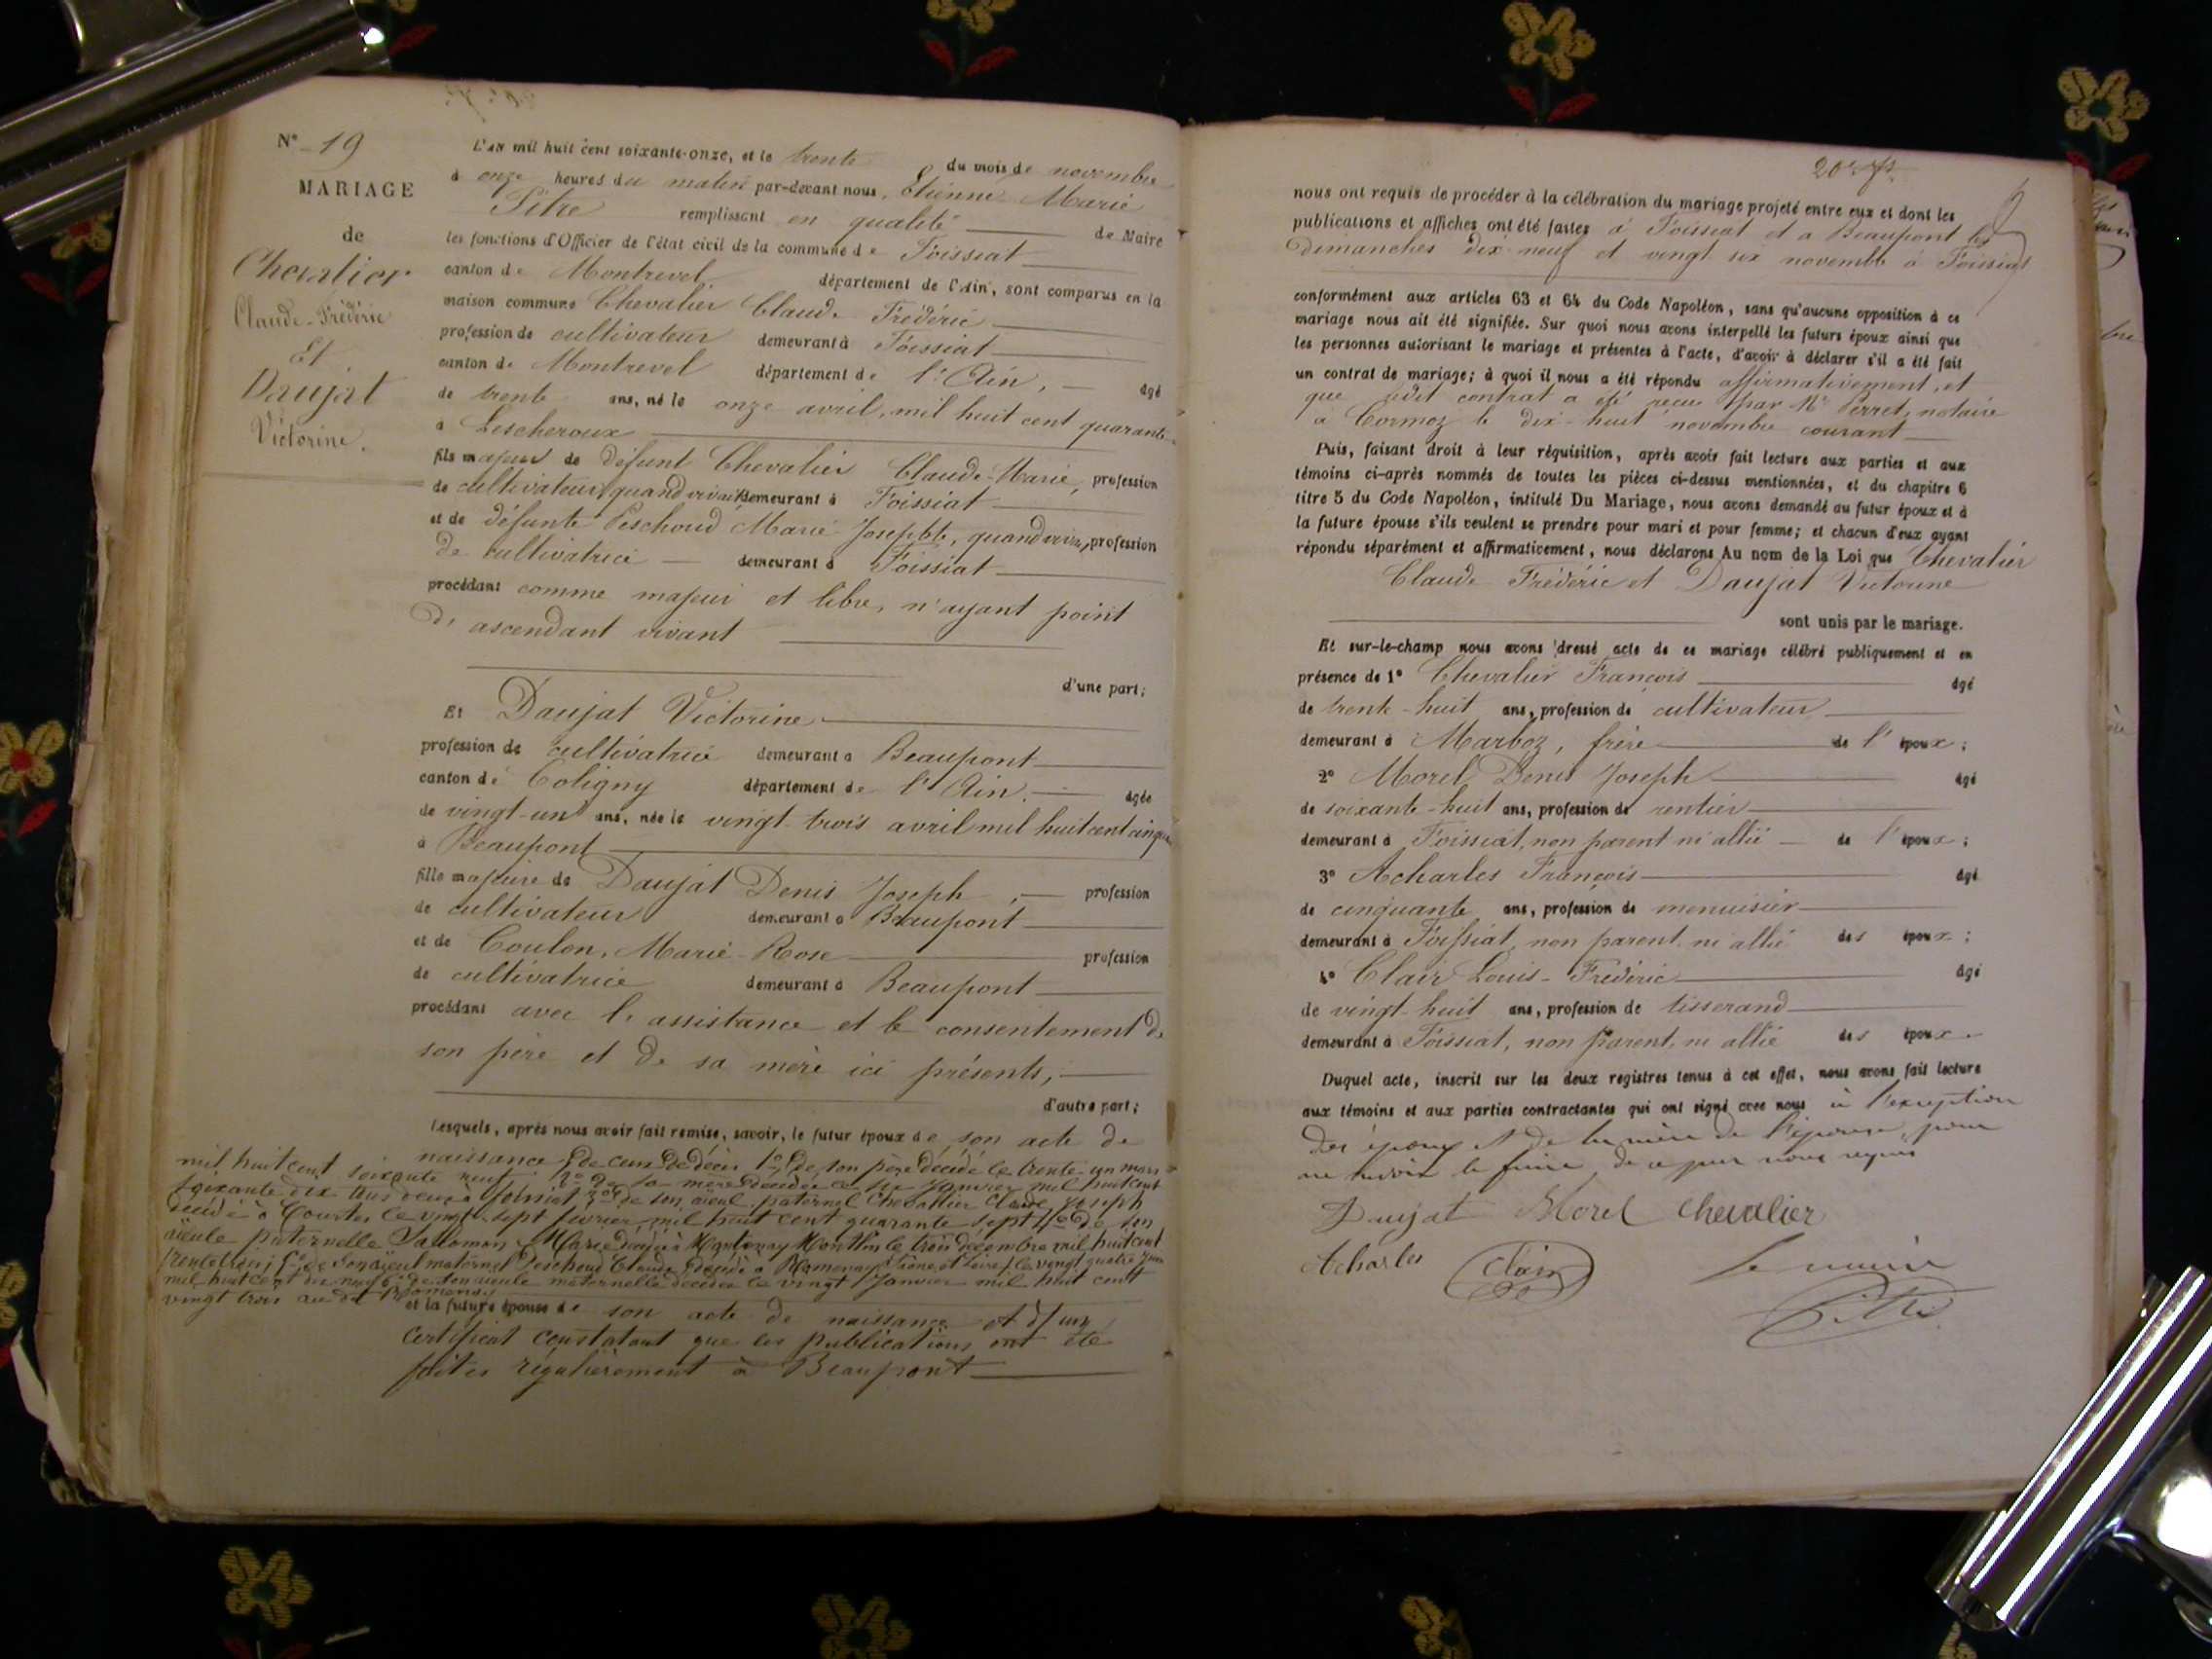 N° 19
MARIAGE
de
Chevalier
Claude-Frédéric
Et
Daujat
Victorine.
L'AN mil huit cent soixante-onze, et le trente du mois de novembre
à onze heures du matin par-devant nous, Etienne Marie
Pitre remplissant en qualité de Maire
les fonctions d'Officier de l'état civil de la commune de Foissiat
canton de Montrevel département de l'Ain, sont comparus en la
maison commune Chevalier Claude Frédéric
profession de cultivateur demeurant à Foissiat
canton de Montrevel département de l'Ain, âgé
de trente ans, né le onze avril, mil huit cent quarante
à Lescheroux
fils majeur de défunt Chevalier Claude-Marie, profession
de cultivateur, quand vivait demeurant à Foissiat
et de défunte Peschoud Marie Josephte, quand vivait, profession
de cultivatrice demeurant à Foissiat
procédant comme majeur et libre, n'ayant point
d'ascendant vivant
d'une part;
Et Daujat Victorine
profession de cultivatrice demeurant à Beaupont
canton de Coligny département de l'Ain. âgée
de vingt-un ans, née le vingt-trois avril mil huit cent cinqu
à Beaupont
fille majeure de Daujat Denis Joseph, profession
de cultivateur demeurant à Beaupont
et de Coulon, Marie-Rose profession
de cultivatrice demeurant à Beaupont
procédant avec l'assistance et le consentement de
son père et de sa mère ici présents,
d'autre part;
Lesquels, après nous avoir fait remise, savoir, le futur époux de son acte de
naissance, de ceux de décès 1° de son père décédé le trente-un mars
mil huit cent soixante neuf; 2° de sa mère décédée le six janvier mil huit cent
soixante-dix tous deux à Foissiat 3° de son aïeul paternel Chevallier Claude Joseph
décédé à Courtes le vingt-sept février mil huit cent quarante sept 4° de son
aïeule paternelle Salomon Marie décédée à Mantenay Montlin le trois décembre mil huit cent
trente trois; 5° de son aïeul maternel Peschoud Claude décédé à Romenay (Saône et Loire) le vingt quatre juin
mil huit cent dix neuf 6° de son aïeule maternelle décédée le vingt janvier mil huit cent
vingt trois au dit Romenay
et la future épouse de son acte de naissance et d'un
certificat constatant que les publications ont été
faites régulièrement à Beaupont
20
nous ont requis de procéder à la célébration du mariage projeté entre eux et dont les
publications et affiches ont été faites à Foissiat et à Beaupont les
dimanches dix-neuf et vingt six novembre à Foissiat
conformément aux articles 63 et 64 du Code Napoléon, sans qu'aucune opposition à ce
mariage nous ait été signifiée. Sur quoi nous avons interpellé les futurs époux ainsi que
les personnes autorisant le mariage et présentes à l'acte, d'avoir à déclarer s'il a été fait
un contrat de mariage; à quoi il nous a été répondu affirmativement, et
que ledit contrat a été reçu par Me Perret, notaire
à Cormoz le dix-huit novembre courant
Puis, faisant droit à leur réquisition, après avoir fait lecture aux parties et aux
témoins ci-après nommés de toutes les pièces ci-dessus mentionnées, et du chapitre 6
titre 5 du Code Napoléon, intitulé Du Mariage, nous avons demandé au futur époux et à
la future épouse s'ils veulent se prendre pour mari et pour femme; et chacun d'eux ayant
répondu séparément et affirmativement, nous déclarons Au nom de la Loi que Chevalier
Claude Frédéric et Daujat Victorine
sont unis par le mariage.
Et sur-le-champ nous avons dressé acte de ce mariage célébré publiquement et en
présence de 1° Chevalier François âgé
de trente-huit ans, profession de cultivateur
demeurant à Marboz, frère de l'époux;
2° Morel Denis Joseph âgé
de soixante-huit ans, profession de rentier
demeurant à Foissiat, non parent ni allié de l'époux;
3° Acharles François âgé
de cinquante ans, profession de menuisier
demeurant à Foissiat, non parent ni allié des époux;
4° Clair Louis-Frédéric âgé
de vingt-huit ans, profession de tisserand
demeurant à Foissiat, non parent, ni allié des époux.
Duquel acte, inscrit sur les deux registres tenus à cet effet, nous avons fait lecture
aux témoins et aux parties contractantes qui ont signé avec nous à l'exception
des époux et de la mère de l'épouse, pour
ne savoir le faire, de ce par nous requis
Daujat Morel Chevalier
Acharles Clair le maire
Pitre